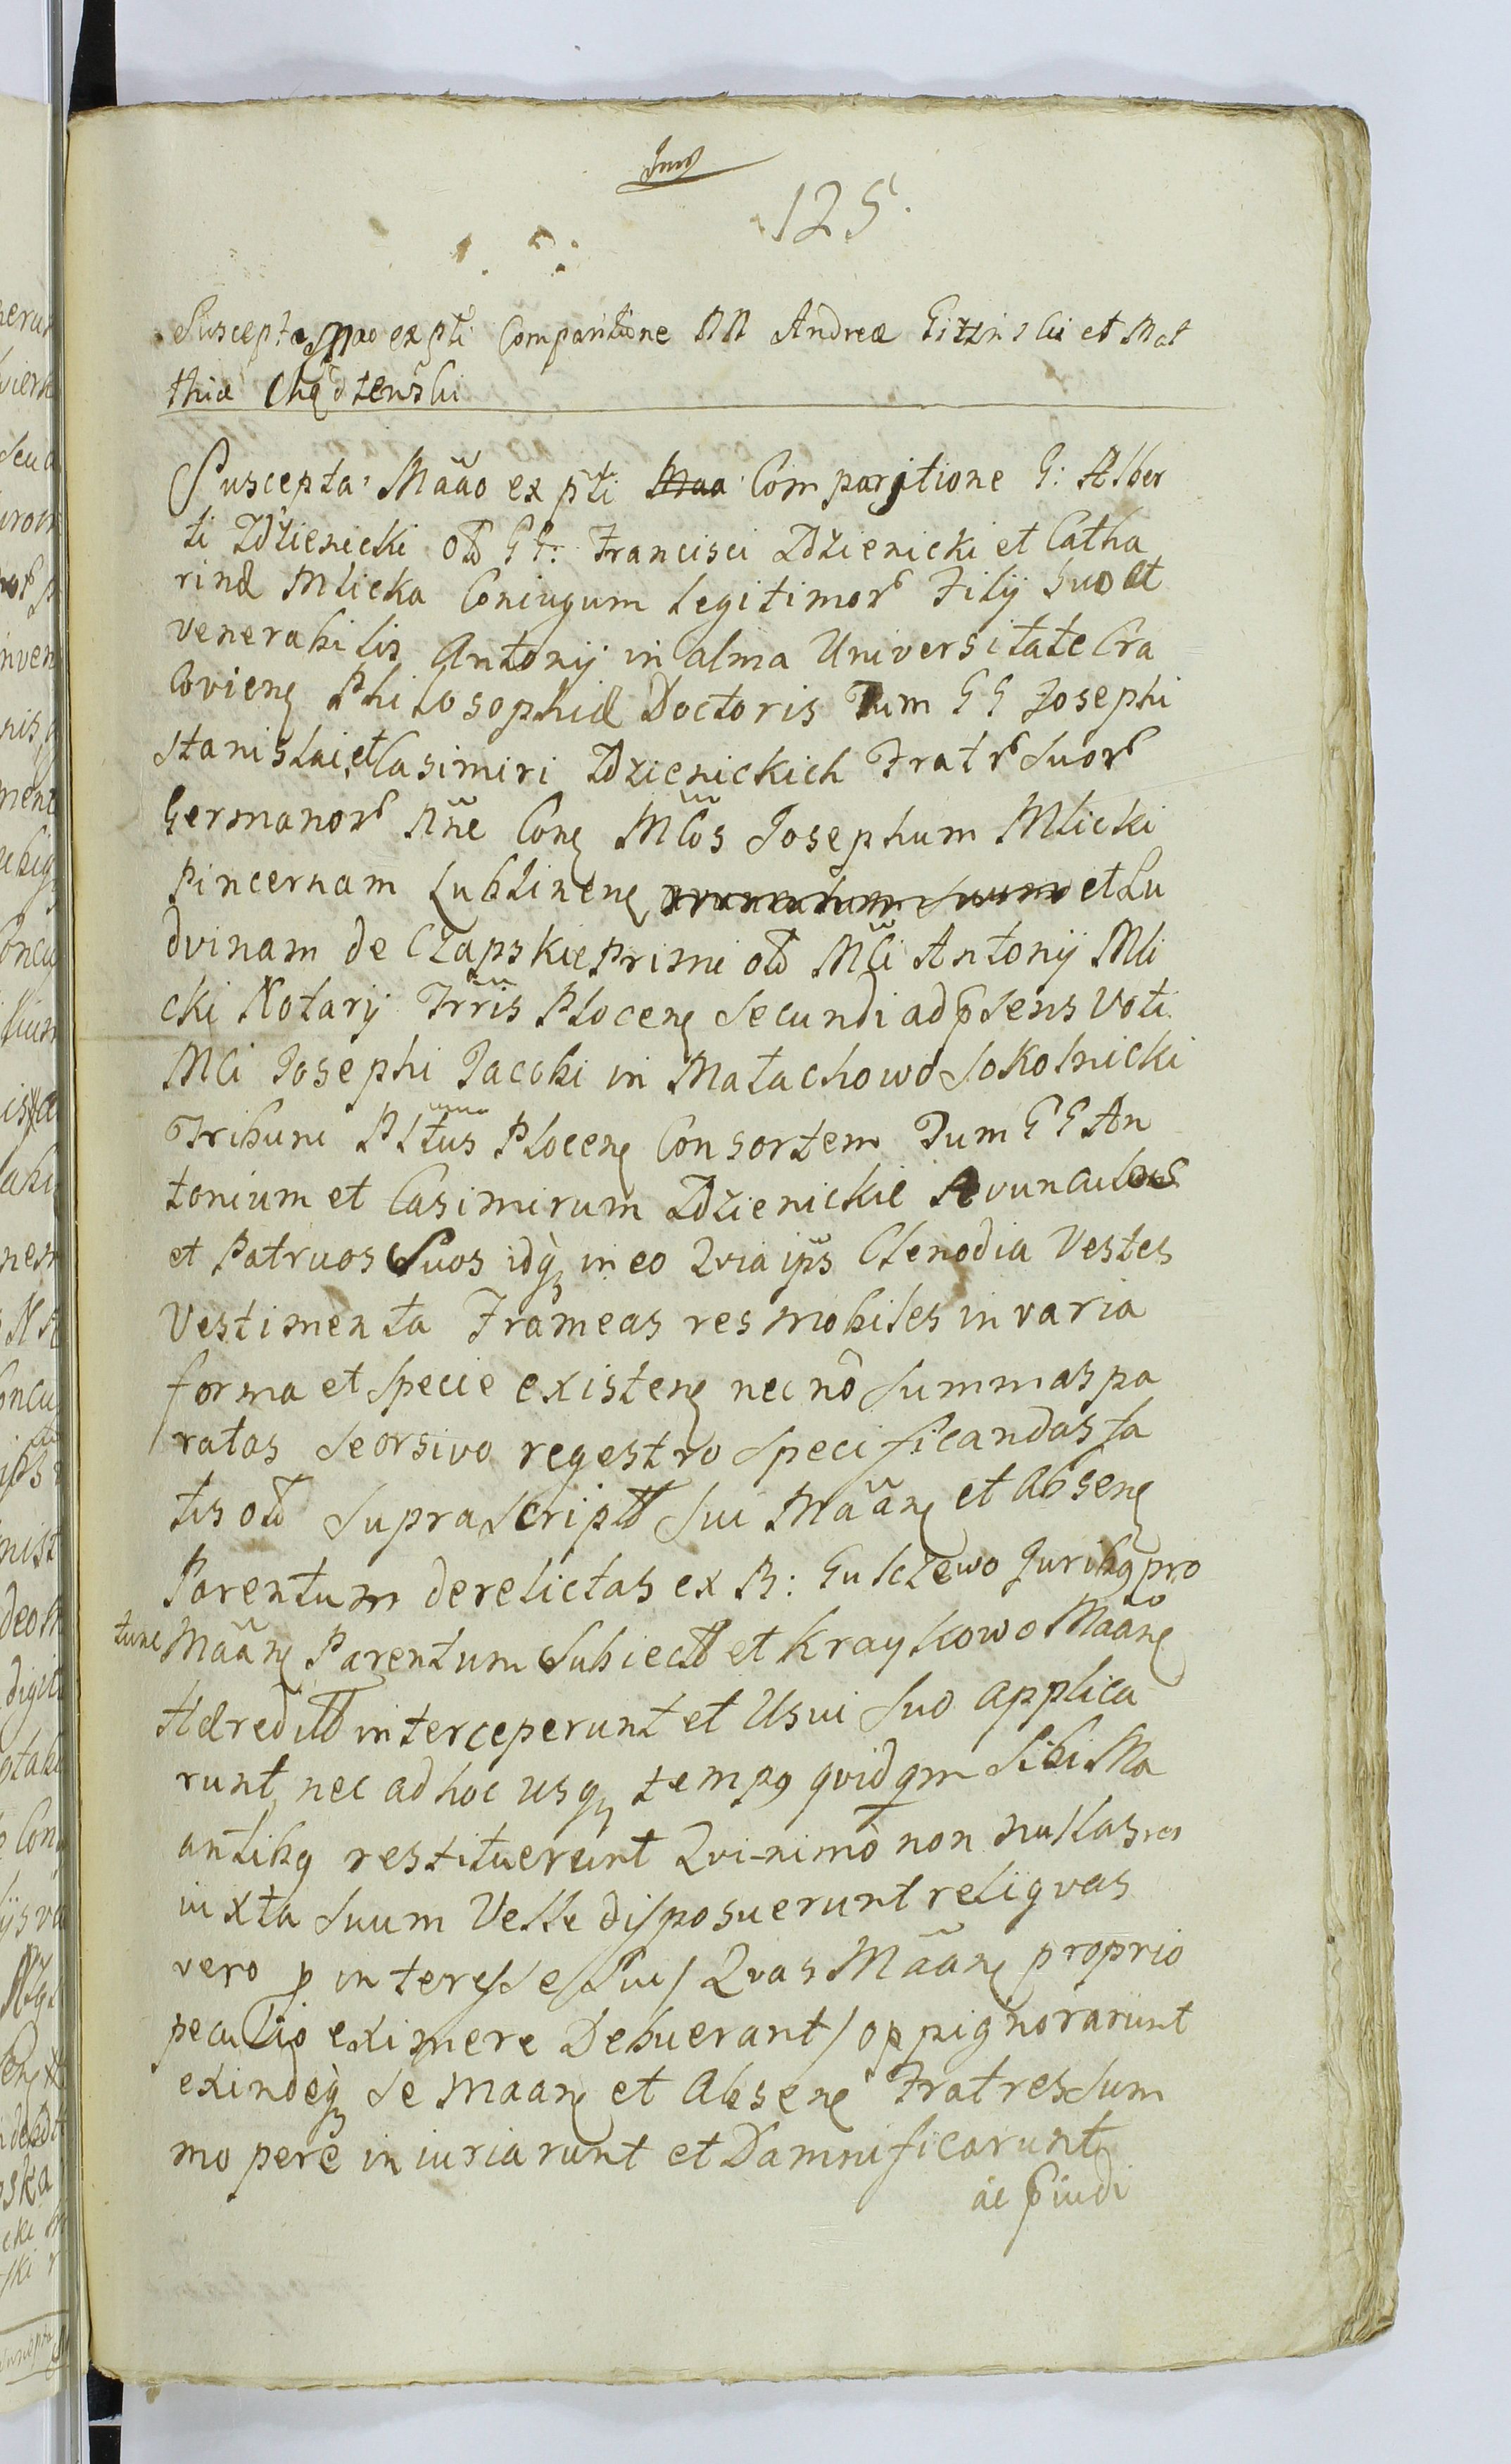 125.
Suscepta Mao ex pti Comparitione NN Andreæ Gizinski et Mat
thiæ Chądzeński
Suscepta Mãao ex p̃ti Maa Comparitione G: Alber
ti Zdzienicki oƚƚ GG: Francisci Zdzienicki et Catha
rinæ Mlicka Coniugum Legitimor Filij Suo et
venerabilis Antonij in alma Universitate Cra
Coviens Philosophiæ Doctoris Tum GG Josephi
Stanislai et Casimiri Zdzienickich Fratr Suor
Germanor Nñe Cons Mcos Josephum Mlicki
Pincernam Lublinens et Lu
dvinam de Czapskie Primi oƚƚ Mci Antonij Mli
cki Notarij Trris Plocens Secundi ad psens Voti
Mci Josephi Jacobi in Małachowo Sokolnicki
Tribuni Pltus Plocens Consortem Tum GG An
tonium et Casimirum Zdzienickie Avunculos
et Patruos Suos idq in eo Qvia ips Clenodia Vestes
Vestimenta Frameas res mobiles in varia
forma et Specie existens nec nõ Summas pa
ratas Seorsivo regestro Specificandas fa
tis oƚƚ Suprascriptt Sui Mãans et Absens
Parentum derelictas ex B: Gulczewo Juribq pro
tunc Mãans Parentum Subiectt et Kraykowo Maans
Hæreditt interceperunt et Usui Suo applica
runt nec ad hoc usq tempq qvidqm Sibi Ma
antibq restituerunt Qvi-nimò non nullas res
iuxta Suum Velle disposuerunt reliqvas
vero p interesse Sui / Qvas Mãans proprio
peculio eximere Debuerant / oppignorarunt
exindeq Se Maans et Absens Fratres Sum
mopere iniuriarunt et Damnificarunt
ac piudi